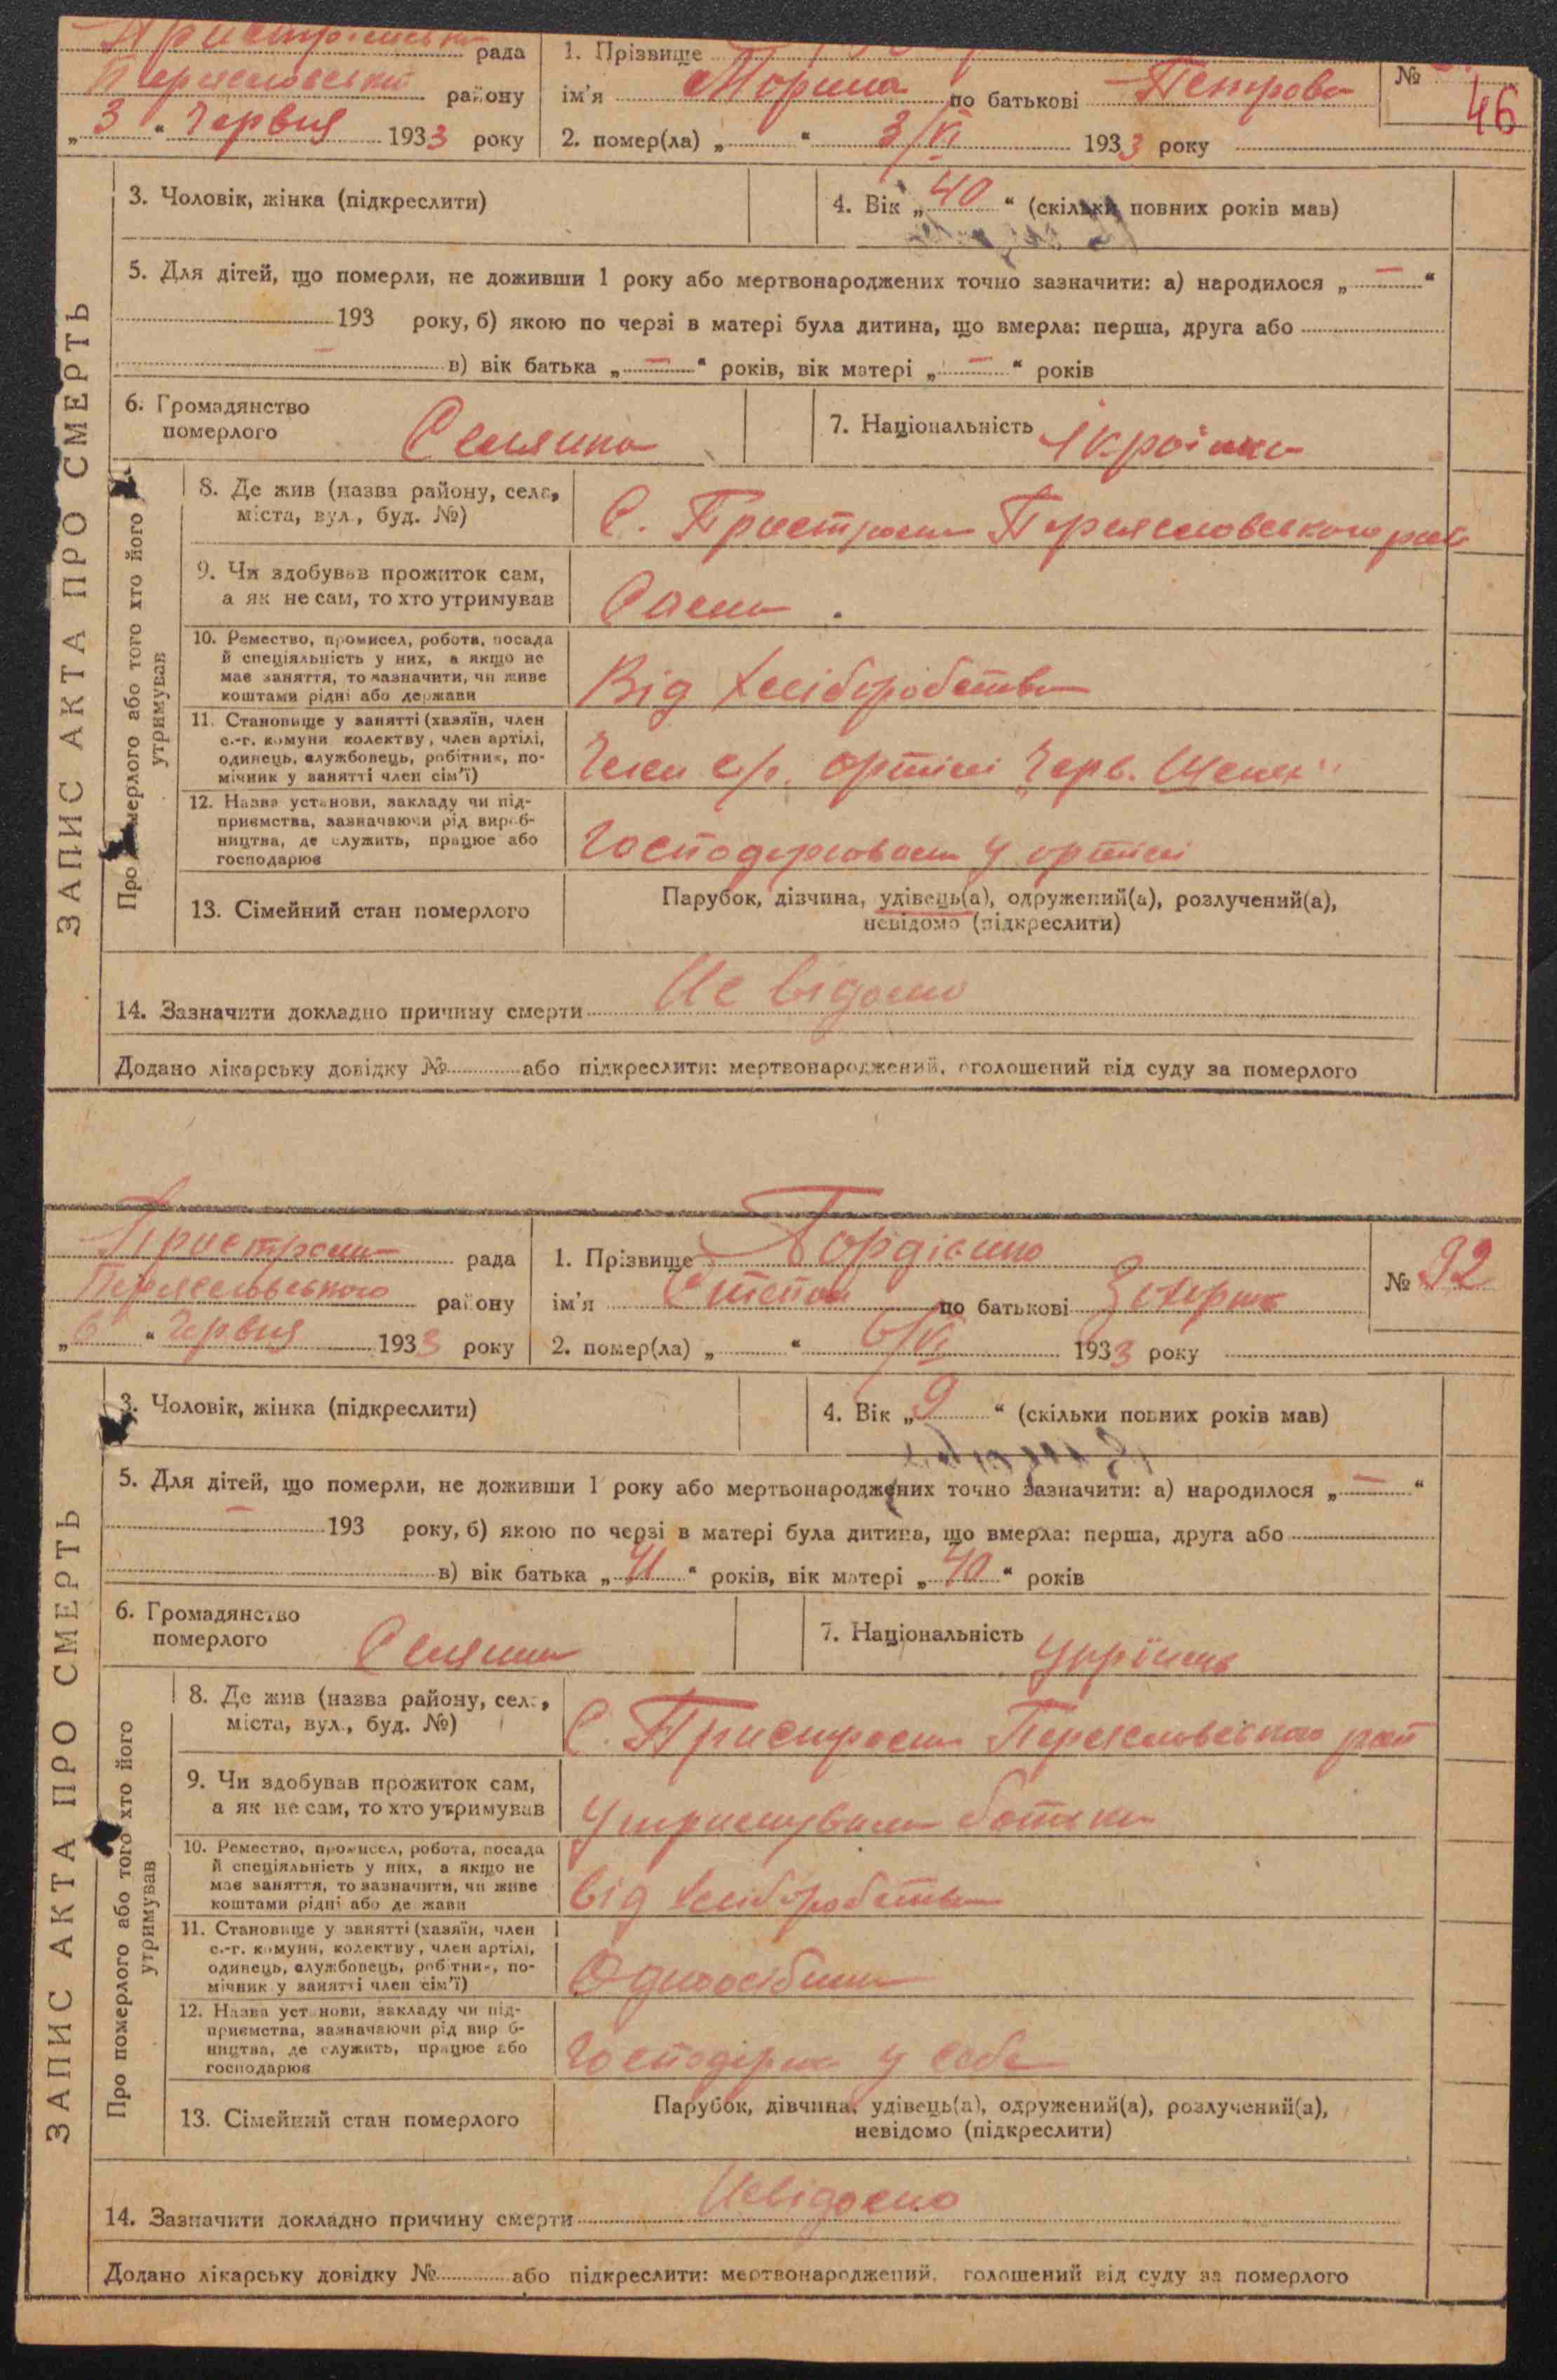 рада
1. Прізвище
району
ім'я Морина по батькові Петрова
№
46
„3“ Червня 1933 року
2. помер(ла) „ “ 3/VI 1933 року
3. Чоловік, жінка (підкреслити)
4. Вік „40“ (скільки повних років мав)
5. Для дітей, що померли, не доживши 1 року або мертвонароджених точно зазначити: а) народилося „—“
193 року, б) якою по черзі в матері була дитина, що вмерла: перша, друга або
— в) вік батька „—“ років, вік матері „—“ років
6. Громадянство
померлого
Селянка
7. Національність
Українка
ЗАПИС АКТА ПРО СМЕРТЬ
Про померлого або того хто його
утримував
8. Де жив (назва району, села,
міста, вул., буд. №)
С. Пристроми Переяславського рай
9. Чи здобував прожиток сам,
а як не сам, то хто утримував
Сама
10. Ремество, промисел, робота, посада
й спеціяльність у них, а якщо не
має заняття, то зазначити, чи живе
коштами рідні або держави
Від хліборобства
11. Становище у занятті (хазяїн, член
с.-г. комуни колективу, член артілі,
одинець, службовець, робітник, по-
мічник у занятті член сім'ї)
Член с/г. артілі Черв.
12. Назва установи, закладу чи під-
приємства, зазначаючи рід вироб-
ництва, де служить, працює або
господарює
у артілі
13. Сімейний стан померлого
Парубок, дівчина, удівець(а), одружений(а), розлучений(а),
невідомо (підкреслити)
14. Зазначити докладно причину смерти Не відомо
Додано лікарську довідку № або підкреслити: мертвонароджений, оголошений від суду за померлого
Пристроми рада
1. Прізвище Гордієнко
Переяславського району
ім'я Степан по батькові
№ 92
„6“ Червня 1933 року
2. помер(ла) „ “ 6/VI 1933 року
3. Чоловік, жінка (підкреслити)
4. Вік „9“ (скільки повних років мав)
5. Для дітей, що померли, не доживши 1 року або мертвонароджених точно зазначити: а) народилося „—“
— 193 року, б) якою по черзі в матері була дитина, що вмерла: перша, друга або
в) вік батька „41“ років, вік матері „40“ років
6. Громадянство
померлого
Селянин
7. Національність
ЗАПИС АКТА ПРО СМЕРТЬ
Про померлого або того хто його
утримував
8. Де жив (назва району, села,
міста, вул., буд. №)
С. Пристроми Переяславського рай
9. Чи здобував прожиток сам,
а як не сам, то хто утримував
Утримували батьки
10. Ремество, промисел, робота, посада
й спеціяльність у них, а якщо не
має заняття, то зазначити, чи живе
коштами рідні або держави
від хліборобства
11. Становище у занятті (хазяїн, член
с.-г. комуни, колективу, член артілі,
одинець, службовець, робітник, по-
мічник у занятті член сім'ї)
Одноосібник
12. Назва установи, закладу чи під-
приємства, зазначаючи рід вироб-
ництва, де служить, працює або
господарює
у себе
13. Сімейний стан померлого
Парубок, дівчина, удівець(а), одружений(а), розлучений(а),
невідомо (підкреслити)
14. Зазначити докладно причину смерти Невідомо
Додано лікарську довідку № або підкреслити: мертвонароджений, голошений від суду за померлого